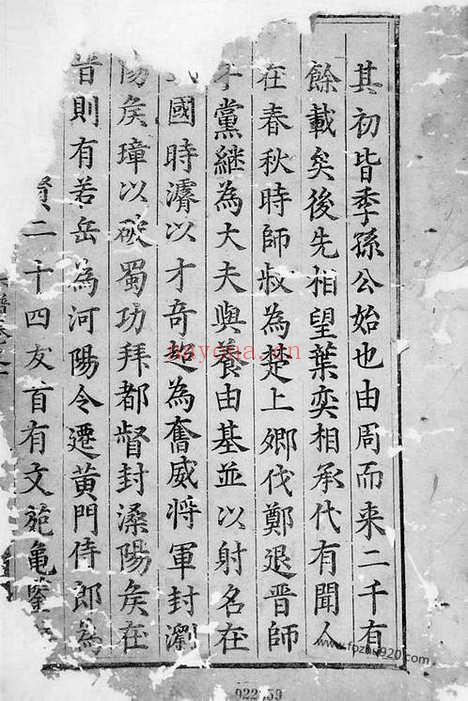 其初皆季孫公始也由周而来二千有
餘載矣後先相望葉奕相承代有聞人
在春秋時師叔為楚上卿伐鄭退晉師
子黨継為大夫與養由基並以射名在
國時濬以才奇超為奮威將軍封瀏
陽矦璋以破蜀功拜都督封溧陽矦在
昔則有若岳為河陽令遷黄門侍郎為
賢二十四友首有文苑龜
nayona.vn
www.fozhu920.com
922 39